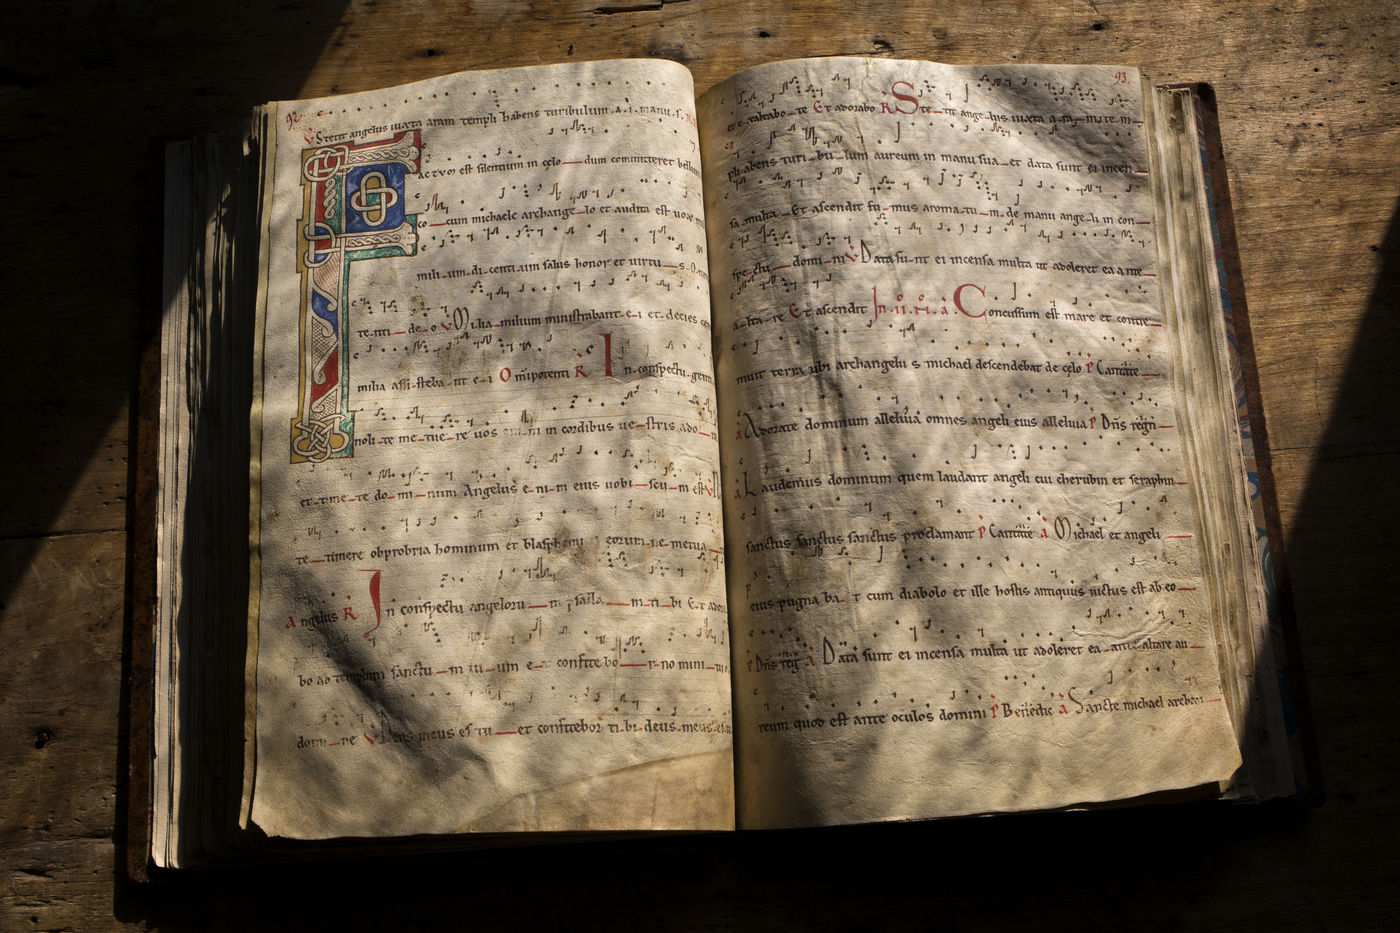 92.
V Stetit angelus iuxta aram templi habens turibulum .a.i. manu .s. R
F ac tum est silentium in cęlo dum committeret bellum
co cum michaele archange lo et audita est uox
mili um di centi um salus honor et uirtu s
tenti de o V Milia milium ministrabant e i et decies
milia assi steba nt e i Omnipotenti R In conspectu genti
noli te me tue re uos in cordibus ue stris ado
et time te do mi num Angelus e ni m eius uobi scu m est V
te timere obprobria hominum et blasphemi eorum ne metua
a ngelus R In conspectu angeloru m psalla m ti bi Et adora
bo ad templum sanctu m tu um e t confitebo r no mini
domi ne V Deus meus es tu et confitebor ti bi deus meus
93.
et exaltabo te Et adorabo R Ste tit ange lus iuxta a ra m te m
pli abens turi bu lum aureum in manu sua et data sunt ei incen
sa multa Et ascendit fu mus aroma tu m de manu ange li in con
spectu domi ni V Data su nt ei incensa multa ut adoleret ea ante
a lta re Et ascendit In .ii. .a. Concussum est mare et contre
muit terra ubi archangelus michael descendebat de cęlo p Cantate
a Adorate dominum alleluia omnes angeli eius alleluia p Dñs regn
a Laudemus dominum quem laudant angeli cui cherubin et seraphin
sanctus sanctus sanctus proclamant p Cantate a Michael et angeli
eius pugna ba t cum diabolo et ille hostis antiquus uictus est ab eo
p Dñs reg a Data sunt ei incensa multa ut adoleret ea ante altare au
reum quod est ante oculos domini p Benedic a Sancte michael archan